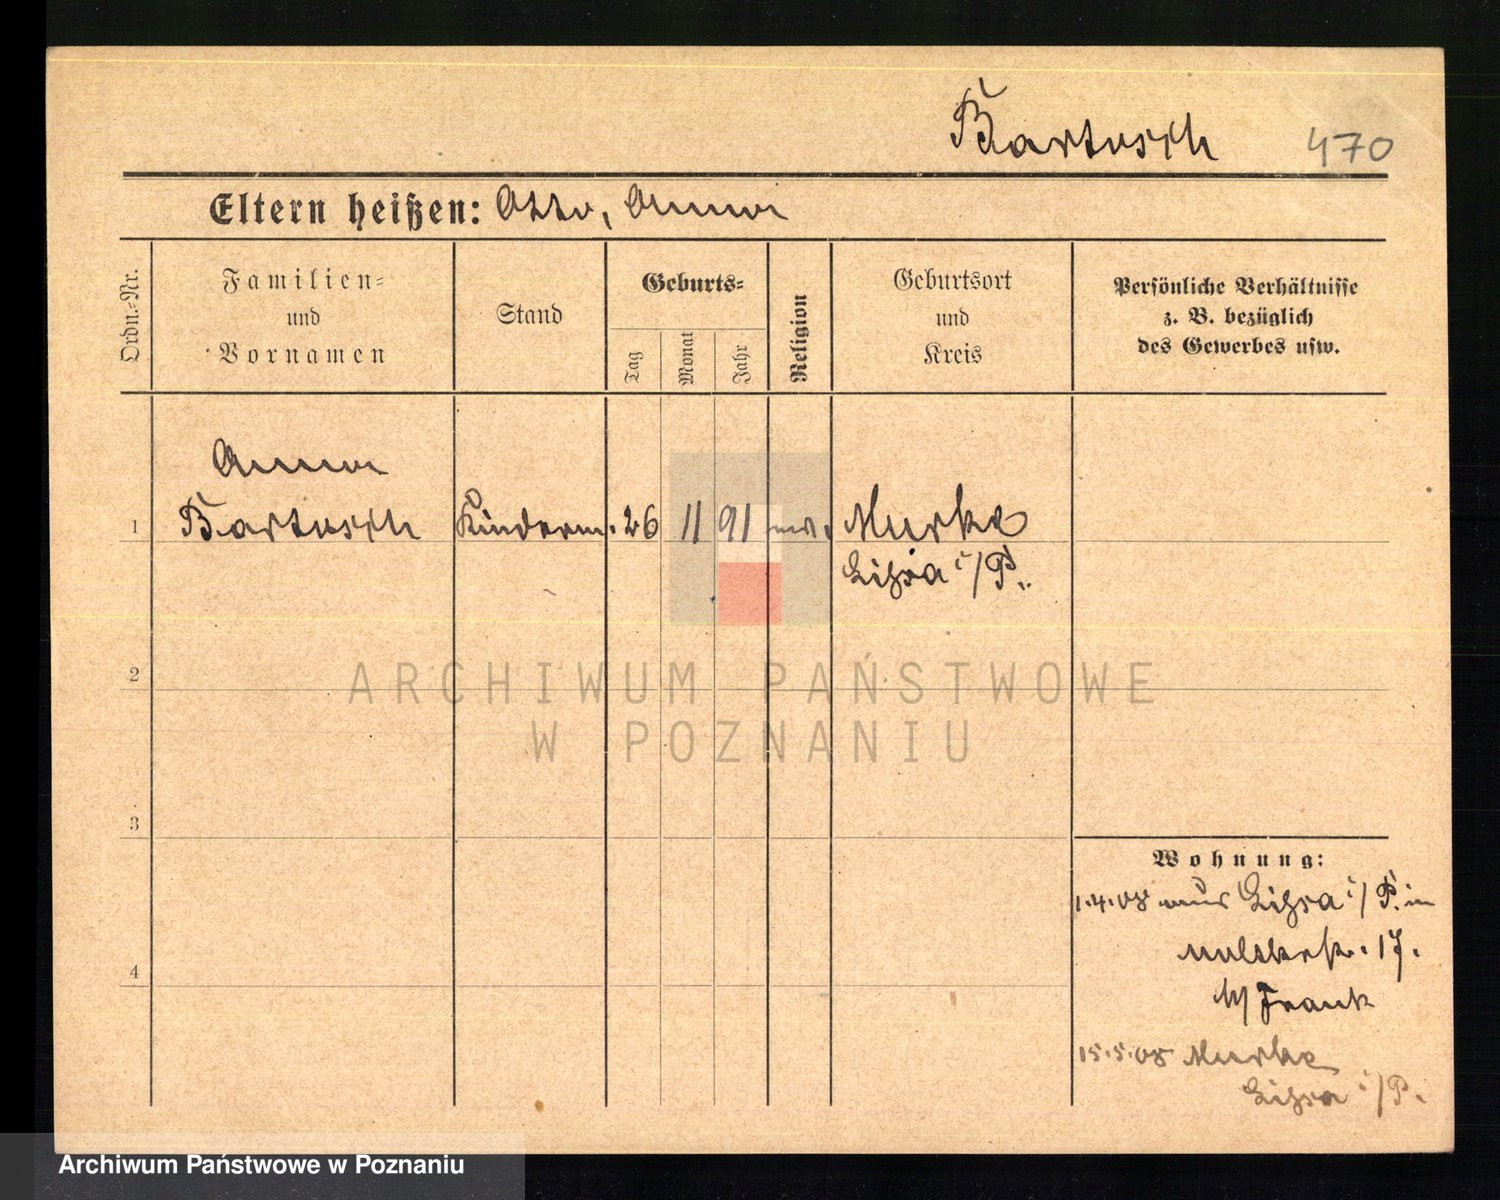 Bartusch 470
Eltern heißen: Otto, Anna
Ordn.-Nr.
Familien-
und
Vornamen
Stand
Geburts-
Tag
Monat
Jahr
Religion
Geburtsort
und
Kreis
Persönliche Verhältnisse
z. B. bezüglich
des Gewerbes usw.
Anna
1 Bartusch Kinderm. 26 11 91 Murke
Lissa i/P.
2
3
4
Wohnung:
1.4.08 aus Lissa i/P. in
17.
b/ Frank
15.5.08 Murke
Lissa i/P.
ARCHIWUM PAŃSTWOWE
W POZNANIU
Archiwum Państwowe w Poznaniu